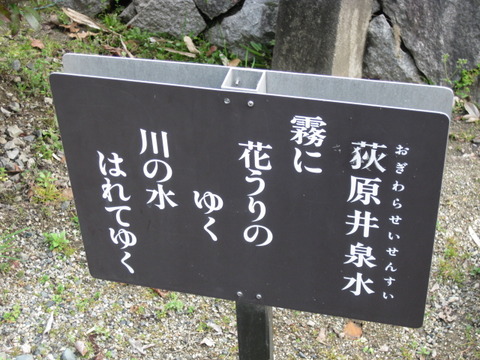 おぎわらせいせんすい
荻原井泉水
霧に
花うりの
ゆく
川の水
はれてゆく